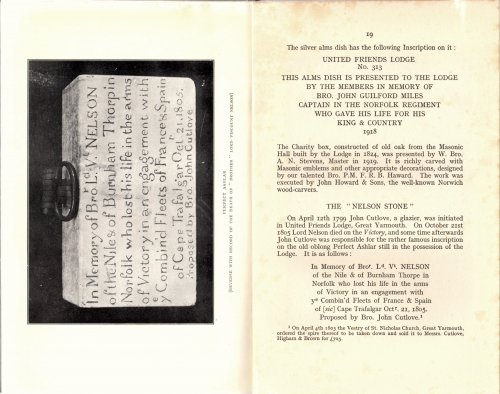 In Memory of Bro L.d V.t NELSON
of the Nile & of Burnham Thorp in
Norfolk who lost his life in the arms
of Victory in an engagement with
y Combin'd Fleets of France & Spain
of Cape Trafalgar, Oct 21, 1805.
Proposed by Bro John Cutlove
PERFECT ASHLAR
(REVERSE WITH RECORD OF THE DEATH OF "BROTHER" LORD VISCOUNT NELSON)
19
The silver alms dish has the following Inscription on it :
UNITED FRIENDS LODGE
No. 313
THIS ALMS DISH IS PRESENTED TO THE LODGE
BY THE MEMBERS IN MEMORY OF
BRO. JOHN GUILFORD MILES
CAPTAIN IN THE NORFOLK REGIMENT
WHO GAVE HIS LIFE FOR HIS
KING & COUNTRY
1918
The Charity box, constructed of old oak from the Masonic
Hall built by the Lodge in 1824, was presented by W. Bro.
A. N. Stevens, Master in 1919. It is richly carved with
Masonic emblems and other appropriate decorations, designed
by our talented Bro. P.M. F. R. B. Haward. The work was
executed by John Howard & Sons, the well-known Norwich
wood-carvers.
THE "NELSON STONE"
On April 12th 1799 John Cutlove, a glazier, was initiated
in United Friends Lodge, Great Yarmouth. On October 21st
1805 Lord Nelson died on the Victory, and some time afterwards
John Cutlove was responsible for the rather famous inscription
on the old oblong Perfect Ashlar still in the possession of the
Lodge. It is as follows :
In Memory of Broʳ. Lᵈ. Vᵗ. NELSON
of the Nile & of Burnham Thorpe in
Norfolk who lost his life in the arms
of Victory in an engagement with
yᵉ Combin'd Fleets of France & Spain
of [sic] Cape Trafalgar Octʳ. 21, 1805.
Proposed by Bro. John Cutlove.¹
¹ On April 4th 1803 the Vestry of St. Nicholas Church, Great Yarmouth,
ordered the spire thereof to be taken down and sold it to Messrs. Cutlove,
Higham & Brown for £305.